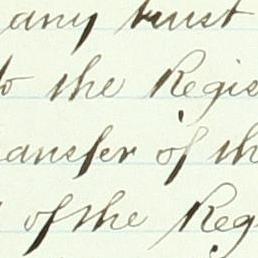 any trust
to the Regis
ansfer of th
of the Reg